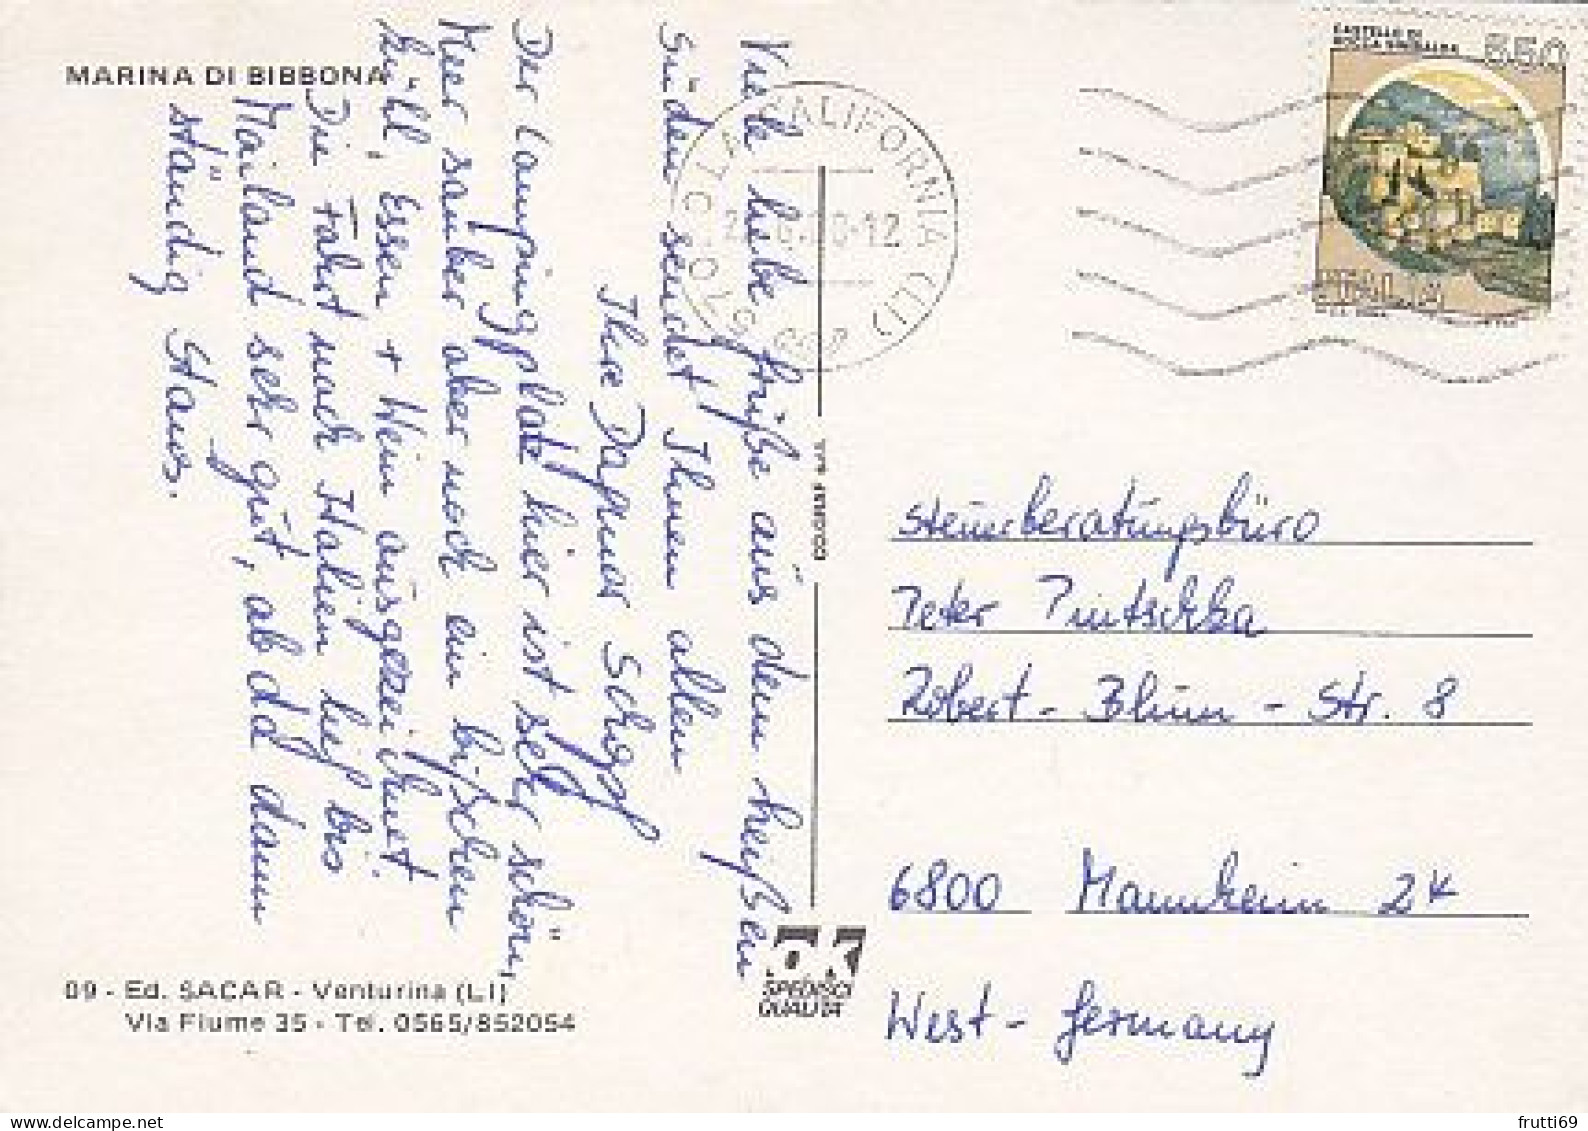 MARINA DI BIBBONA
Viele liebe Grüße aus dem heißen
Süden sendet Ihnen allen
Ihre Dagmar
Der Campingplatz hier ist sehr schön,
Meer sauber aber noch ein bißchen
kühl, Essen + Wein ausgezeichnet.
Die Fahrt nach Italien lief bis
Mailand sehr gut, ab da dann
ständig Staus.
09 - Ed. SACAR - Venturina (LI)
Via Fiume 35 - Tel. 0565/852054
SPEDISCI
QUALITA'
LA CALIFORNIA (LI)
CASTELLO DI
ROCCA SINIBALDA
550
ITALIA
Steuerberatungsbüro
Peter Pintschka
Robert-Blum-Str. 8
6800 Mannheim 24
West-Germany
frutti69